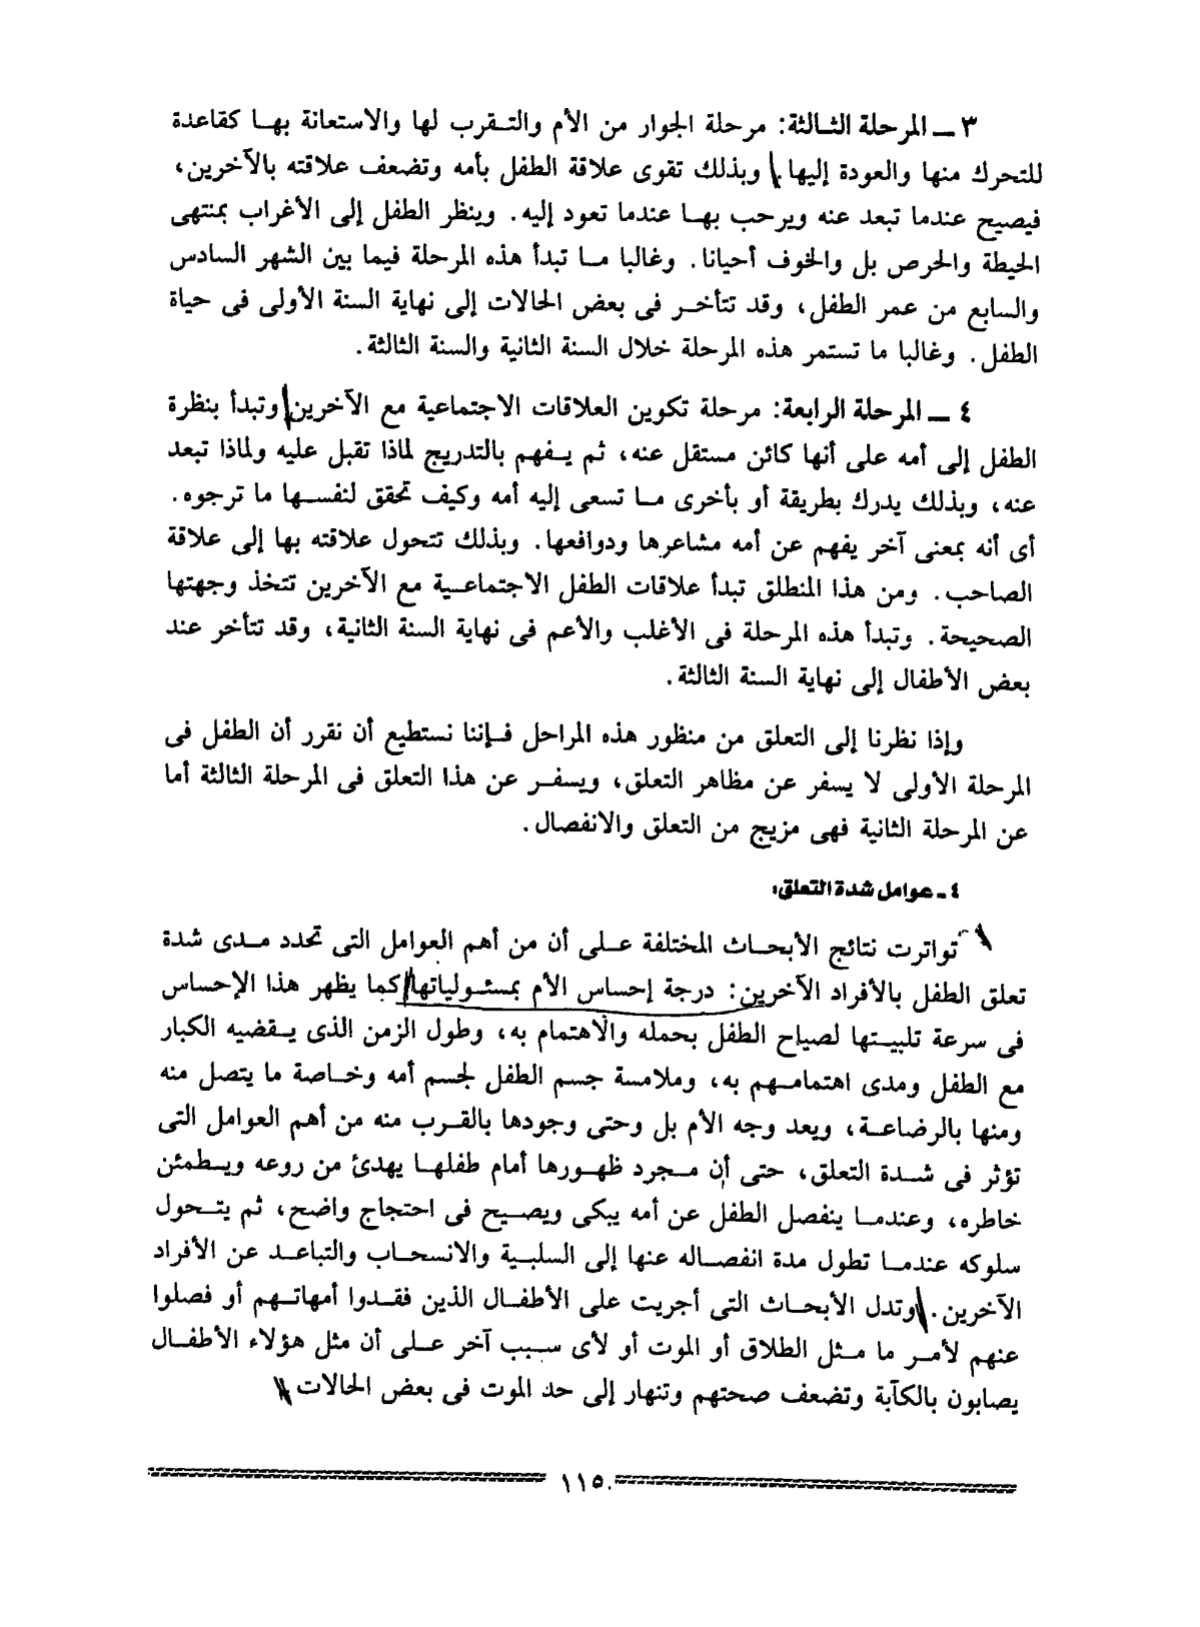 ٣ ــ المرحلة الثالثة: مرحلة الجوار من الأم والتقرب لها والاستعانة بها كقاعدة
للتحرك منها والعودة إليها. وبذلك تقوى علاقة الطفل بأمه وتضعف علاقته بالآخرين،
فيصيح عندما تبعد عنه ويرحب بها عندما تعود إليه. وينظر الطفل إلى الأغراب بمنتهى
الحيطة والحرص بل والخوف أحيانا. وغالبا ما تبدأ هذه المرحلة فيما بين الشهر السادس
والسابع من عمر الطفل، وقد تتأخر فى بعض الحالات إلى نهاية السنة الأولى فى حياة
الطفل. وغالبا ما تستمر هذه المرحلة خلال السنة الثانية والسنة الثالثة.
٤ ــ المرحلة الرابعة: مرحلة تكوين العلاقات الاجتماعية مع الآخرين وتبدأ بنظرة
الطفل إلى أمه على أنها كائن مستقل عنه، ثم يفهم بالتدريج لماذا تقبل عليه ولماذا تبعد
عنه، وبذلك يدرك بطريقة أو بأخرى ما تسعى إليه أمه وكيف تحقق لنفسها ما ترجوه.
أى أنه بمعنى آخر يفهم عن أمه مشاعرها ودوافعها. وبذلك تتحول علاقته بها إلى علاقة
الصاحب. ومن هذا المنطلق تبدأ علاقات الطفل الاجتماعية مع الآخرين تتخذ وجهتها
الصحيحة. وتبدأ هذه المرحلة فى الأغلب والأعم فى نهاية السنة الثانية، وقد تتأخر عند
بعض الأطفال إلى نهاية السنة الثالثة.
وإذا نظرنا إلى التعلق من منظور هذه المراحل فإننا نستطيع أن نقرر أن الطفل فى
المرحلة الأولى لا يسفر عن مظاهر التعلق، ويسفر عن هذا التعلق فى المرحلة الثالثة أما
عن المرحلة الثانية فهى مزيج من التعلق والانفصال.
٤ ـ عوامل شدة التعلق:
تواترت نتائج الأبحاث المختلفة على أن من أهم العوامل التى تحدد مدى شدة
تعلق الطفل بالأفراد الآخرين: درجة إحساس الأم بمسئولياتها كما يظهر هذا الإحساس
فى سرعة تلبيتها لصياح الطفل بحمله والاهتمام به، وطول الزمن الذى يقضيه الكبار
مع الطفل ومدى اهتمامهم به، وملامسة جسم الطفل لجسم أمه وخاصة ما يتصل منه
ومنها بالرضاعة، ويعد وجه الأم بل وحتى وجودها بالقرب منه من أهم العوامل التى
تؤثر فى شدة التعلق، حتى أن مجرد ظهورها أمام طفلها يهدئ من روعه ويطمئن
خاطره، وعندما ينفصل الطفل عن أمه يبكى ويصيح فى احتجاج واضح، ثم يتحول
سلوكه عندما تطول مدة انفصاله عنها إلى السلبية والانسحاب والتباعد عن الأفراد
الآخرين. وتدل الأبحاث التى أجريت على الأطفال الذين فقدوا أمهاتهم أو فصلوا
عنهم لأمر ما مثل الطلاق أو الموت أو لأى سبب آخر على أن مثل هؤلاء الأطفال
يصابون بالكآبة وتضعف صحتهم وتنهار إلى حد الموت فى بعض الحالات
١١٥